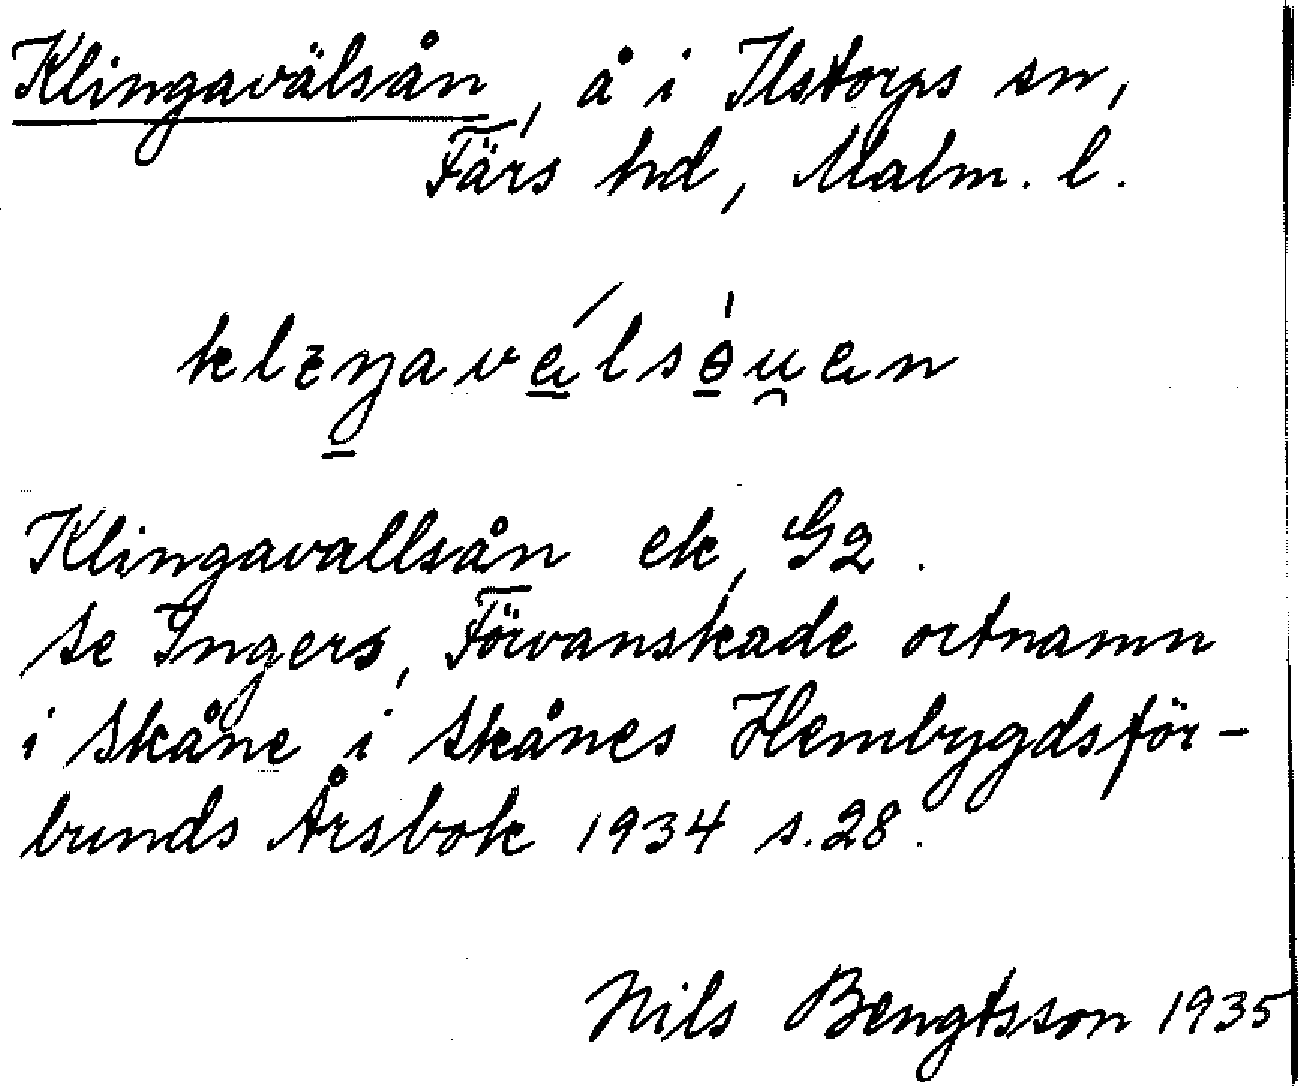 Klingavälsån, å i Ilstorps sn,
Färs hd, Malm. l.
Klingavallsån ek, G2.
Se Ingers, Förvanskade ortnamn
i Skåne i Skånes Hembygdsför-
bunds Årsbok 1934 s. 28.
Nils Bengtsson 1935